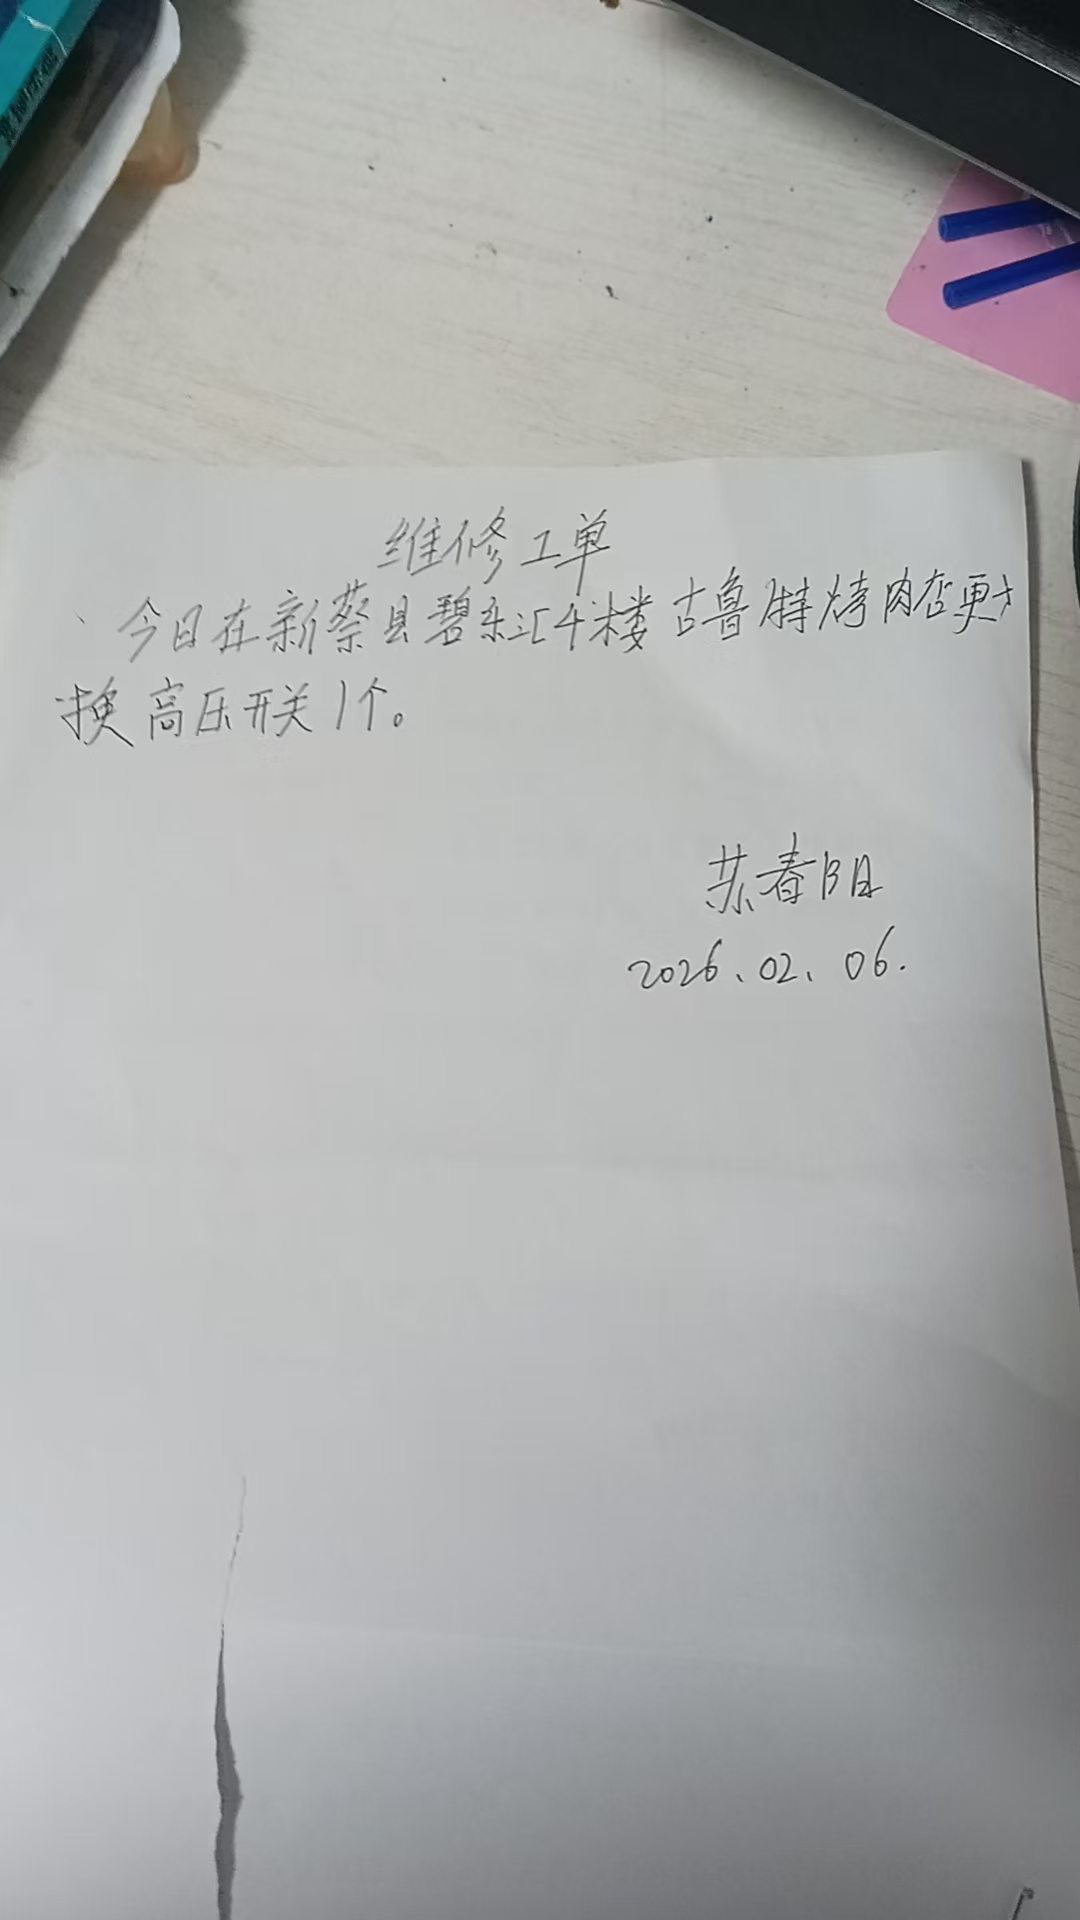 维修工单
今日在新蔡县碧乐汇4楼古鲁特烤肉店更
换高压开关1个。
苏春阳
2026、02、06.